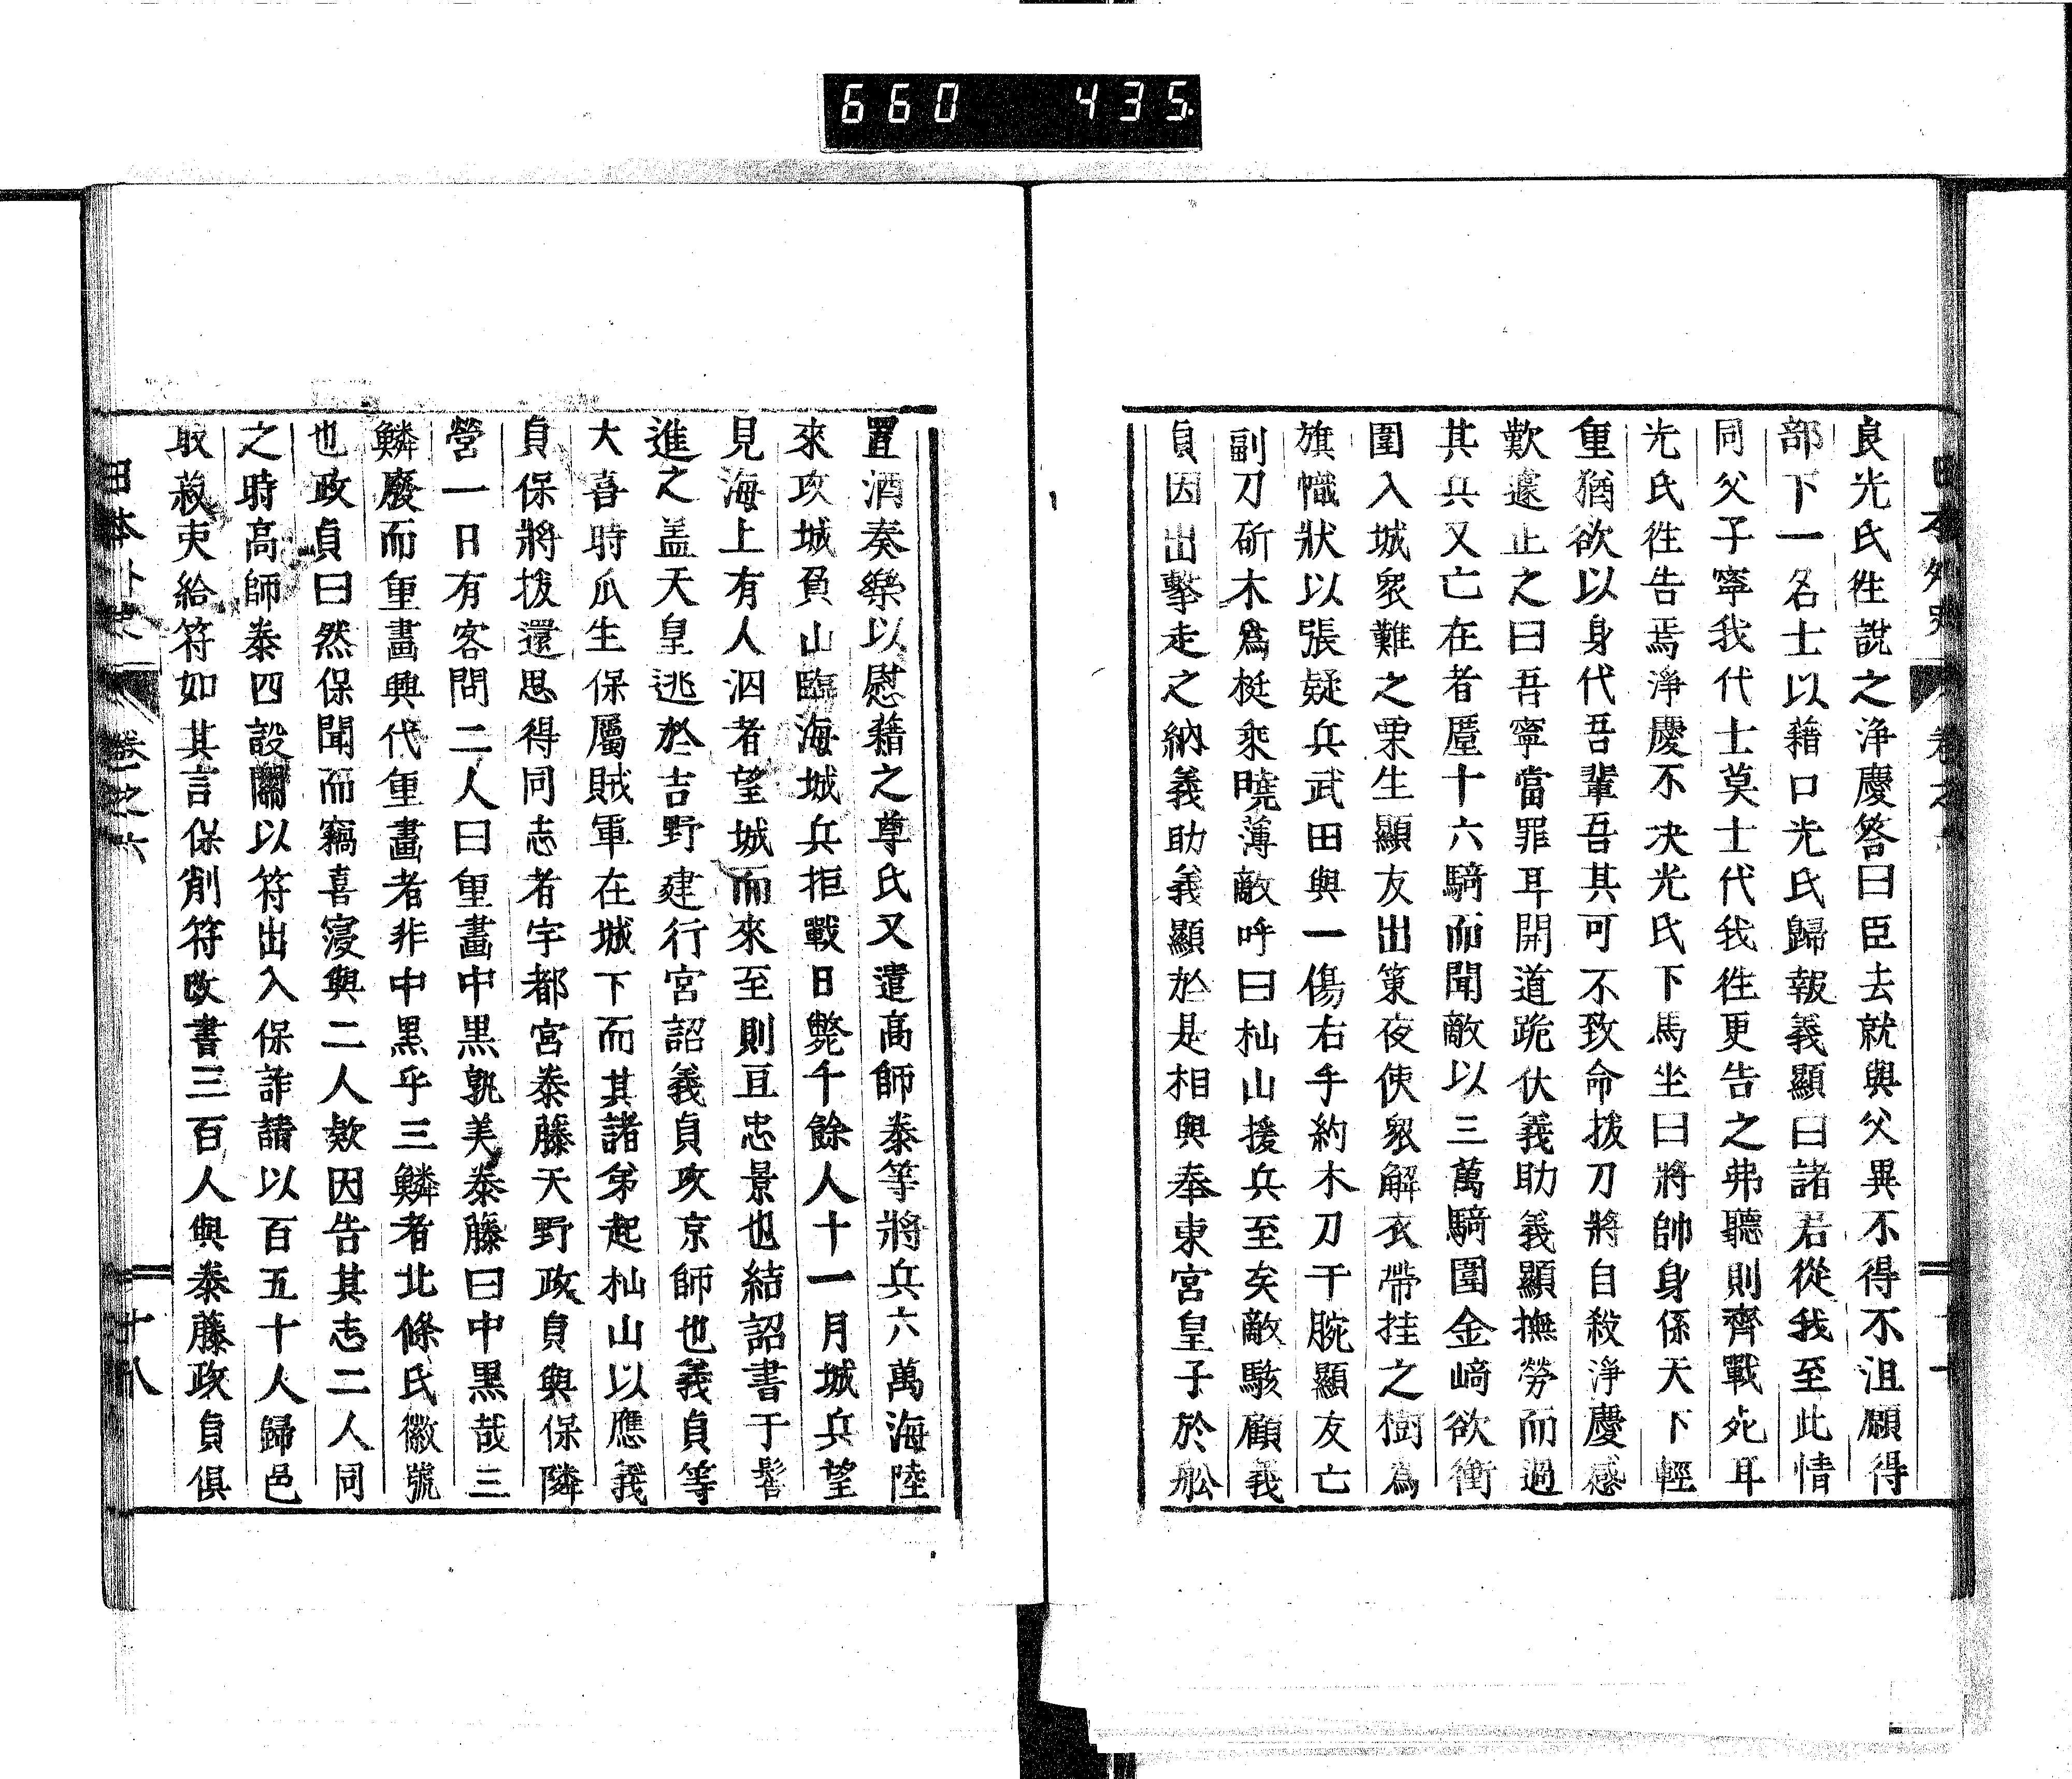 660 435
日本外史 卷之
良光氏徃說之淨慶答曰臣去就與父異不得不沮願得
部下一名士以藉口光氏歸報義顯曰諸君從我至此情
同父子寧我代士莫士代我徃更告之弗聽則齊戰死耳
光氏徃告焉淨慶不决光氏下馬坐曰將帥身係天下輕
重猶欲以身代吾輩吾其可不致命拔刀將自殺淨慶感
歎遽止之曰吾寧當罪耳開道跪伏義助義顯撫勞而過
其兵又亡在者厪十六騎而聞敵以三萬騎圍金﨑欲衝
圍入城衆難之栗生顯友出策夜使衆解衣帶挂之樹爲
旗幟狀以張疑兵武田與一傷右手約木刀于腕顯友亡
副刀斫木爲梃乘曉薄敵呼曰杣山援兵至矣敵駭顧義
貞因出擊走之納義助義顯於是相與奉東宮皇子於舩
置酒奏樂以慰藉之尊氏又遣高師泰等將兵六萬海陸
來攻城負山臨海城兵拒戰日斃千餘人十一月城兵望
見海上有人泅者望城而來至則亘忠景也結詔書于髻
進之盖天皇逃於吉野建行宮詔義貞攻京師也義貞等
大喜時瓜生保屬賊軍在城下而其諸弟起杣山以應義
貞保將拔還思得同志者宇都宮泰藤天野政貞與保隣
營一日有客問二人曰重畫中黑孰美泰藤曰中黑哉三
鱗廢而重畫興代重畫者非中黑乎三鱗者北條氏徽號
也政貞曰然保聞而竊喜寖與二人欵因告其志二人同
之時高師泰四設關以符出入保詐請以百五十人歸邑
取菽吏給符如其言保削符改書三百人與泰藤政貞俱
日本外史 卷之六 十八